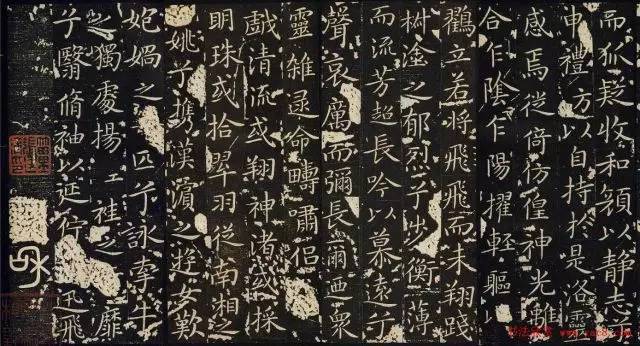 而狐疑收和顏以静志
申禮方以自持於是洛靈
感焉徙倚彷徨神光離
合乍陰乍陽擢輕軀以
鸛立若將飛飛而未翔踐
椒塗之郁烈兮步衡薄
而流芳超長吟以慕遠兮
聲哀厲而彌長爾迺衆
靈雜遝命疇嘯侣
戲清流或翔神渚或採
明珠或拾翠羽從南湘之
姚兮攜漢濱之遊女歎
妃媧之匹兮詠牽牛
之獨處揚袿之靡
兮翳脩袖以延佇迅飛